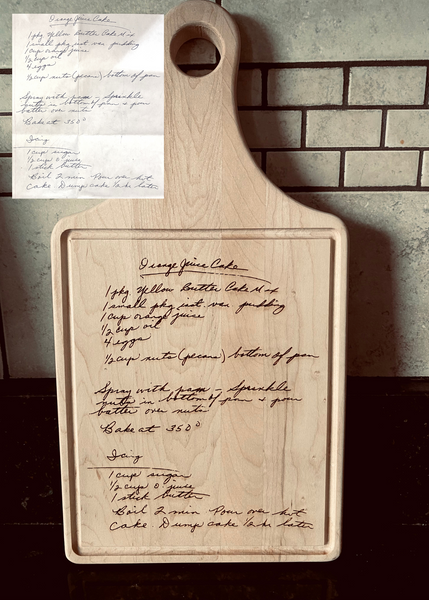 Orange Juice Cake
1 pkg Yellow Butter Cake Mix
1 small pkg inst. van pudding
1 cup orange juice
1/2 cup oil
4 eggs
1/2 cup nuts (pecans) bottom of pan
Spray with pam - Sprinkle
nuts in bottom of pan & pour
batter over nuts
Bake at 350°
Icing
1 cup sugar
1/2 cup o' juice
1 stick butter
Boil 2 min Pour over hot
cake. Dump cake later
Orange Juice Cake
1 pkg Yellow Butter Cake Mix
1 small pkg inst. van pudding
1 cup orange juice
1/2 cup oil
4 eggs
1/2 cup nuts (pecans) bottom of pan
Spray with pam - Sprinkle
nuts in bottom of pan & pour
batter over nuts
Bake at 350°
Icing
1 cup sugar
1/2 cup o' juice
1 stick butter
Boil 2 min Pour over hot
Cake. Dump cake later